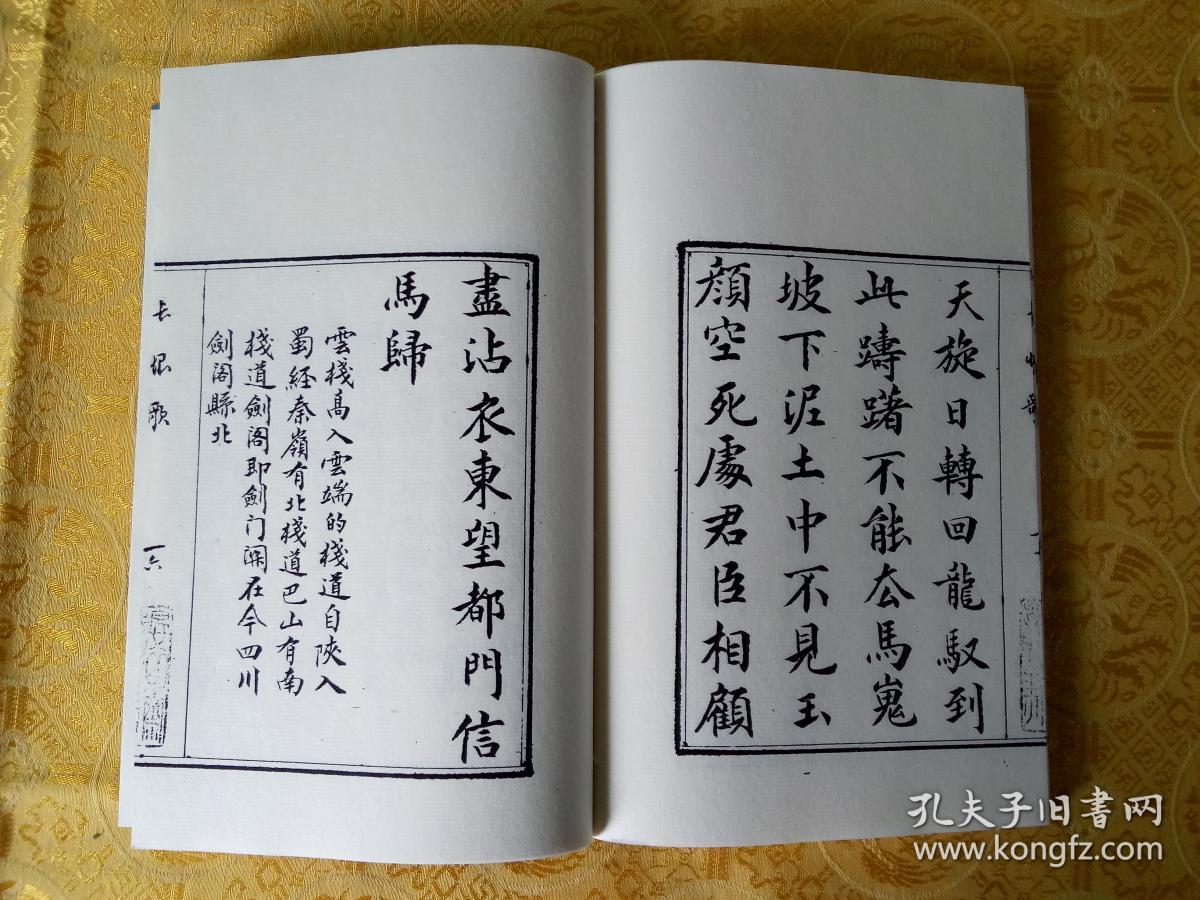 天旋日轉回龍馭到
此躊躇不能厺馬嵬
坡下泥土中不見玉
顔空死處君臣相顧
盡沾衣東望都門信
馬歸
雲棧高入雲端的棧道自陝入
蜀経秦嶺有北棧道巴山有南
棧道劍阁即劍门関在今四川
劍阁縣北
長恨歌
一六
孔夫子旧书网
www.kongfz.com